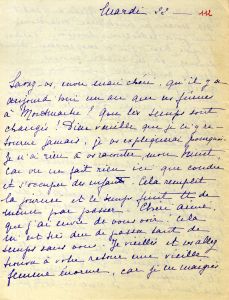 Mardi 22 112
Savez-vs, mon mari chéri, qu'il y a
aujourd'hui un an que ns fûmes
à Montmartre ! Que les temps sont
changés ! Dieu veuille que je n'y re-
tourne jamais, je vs expliquerai pourquoi
Je n'ai rien à vs raconter mon
car on ne fait rien ici que coudre
et s'occuper des enfants. Cela remplit
la journée et le temps finit tt de
même par passer. Cher aimé,
que j'ai envie de vous voir ! Cela
m'est si dur de passer tant de
temps sans vous. Je vieillis et vs allez
trouver à votre retour une vieille
femme énorme, car je ne mangeais